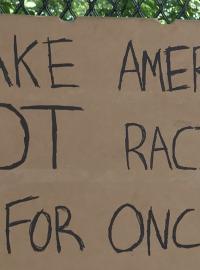 AKE AMER
OT RAC
FOR ONC